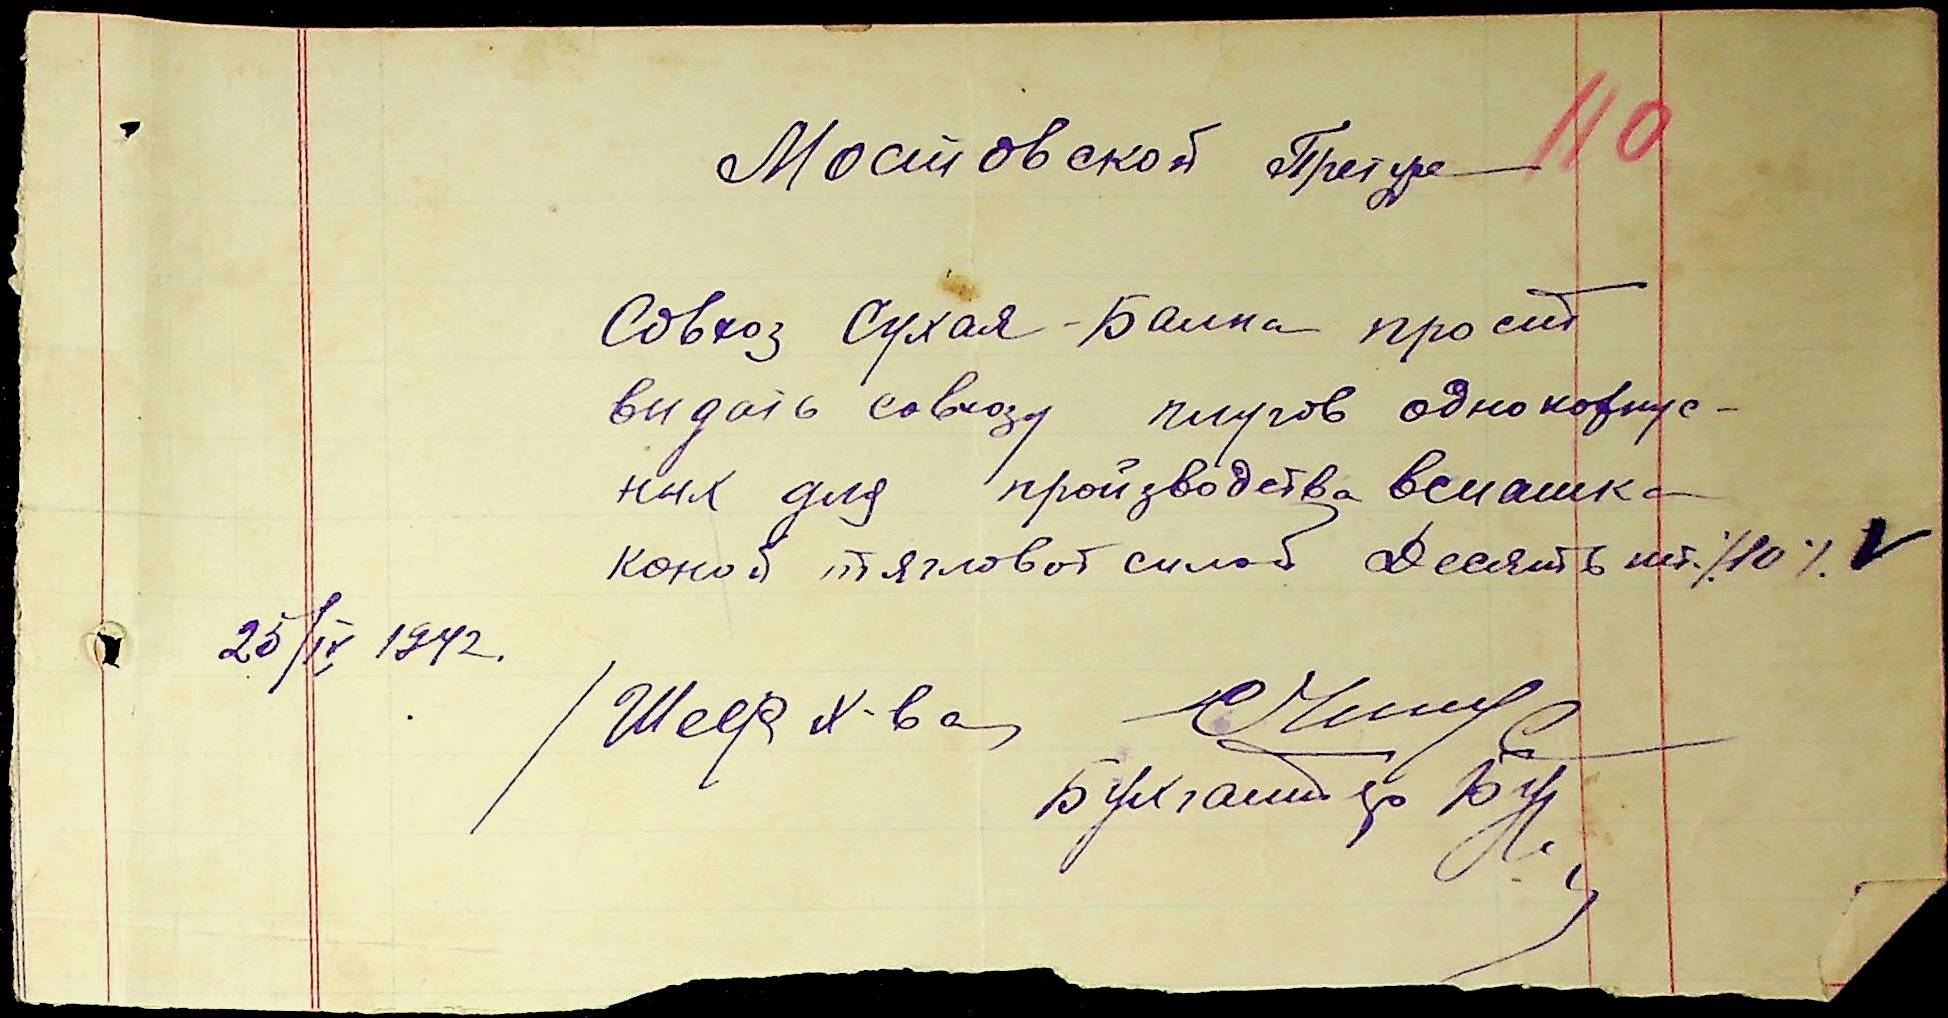 110
Мостовской Претуре
Совхоз Сухая-Балка просит
видать совхозу плугов однокорпус-
них для произзводства вспашка
коной тягловой силой Десять шт. /10/. V
25/IV 1942.
/Шеф х-ва
Бухгалтер